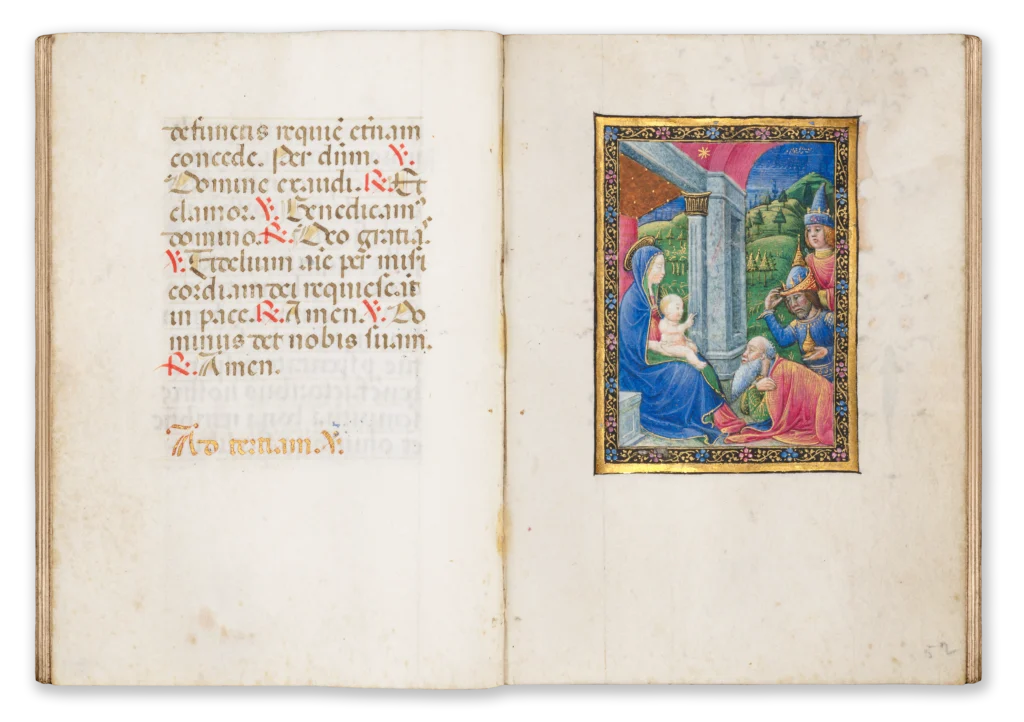 defunctis requiē etnam
concede. Per dūm. ℣.
Domine exaudi. ℟. Et
clamor. ℣. Benedicam⁹
domino. ℟. Deo gratiā.
℣. Fidelium aīe per misi
cordiam dei requiescāt
in pace. ℟. Amen. ℣. Do
minus det nobis suam.
℟. Amen.
Ad tertiam. ℣.
52